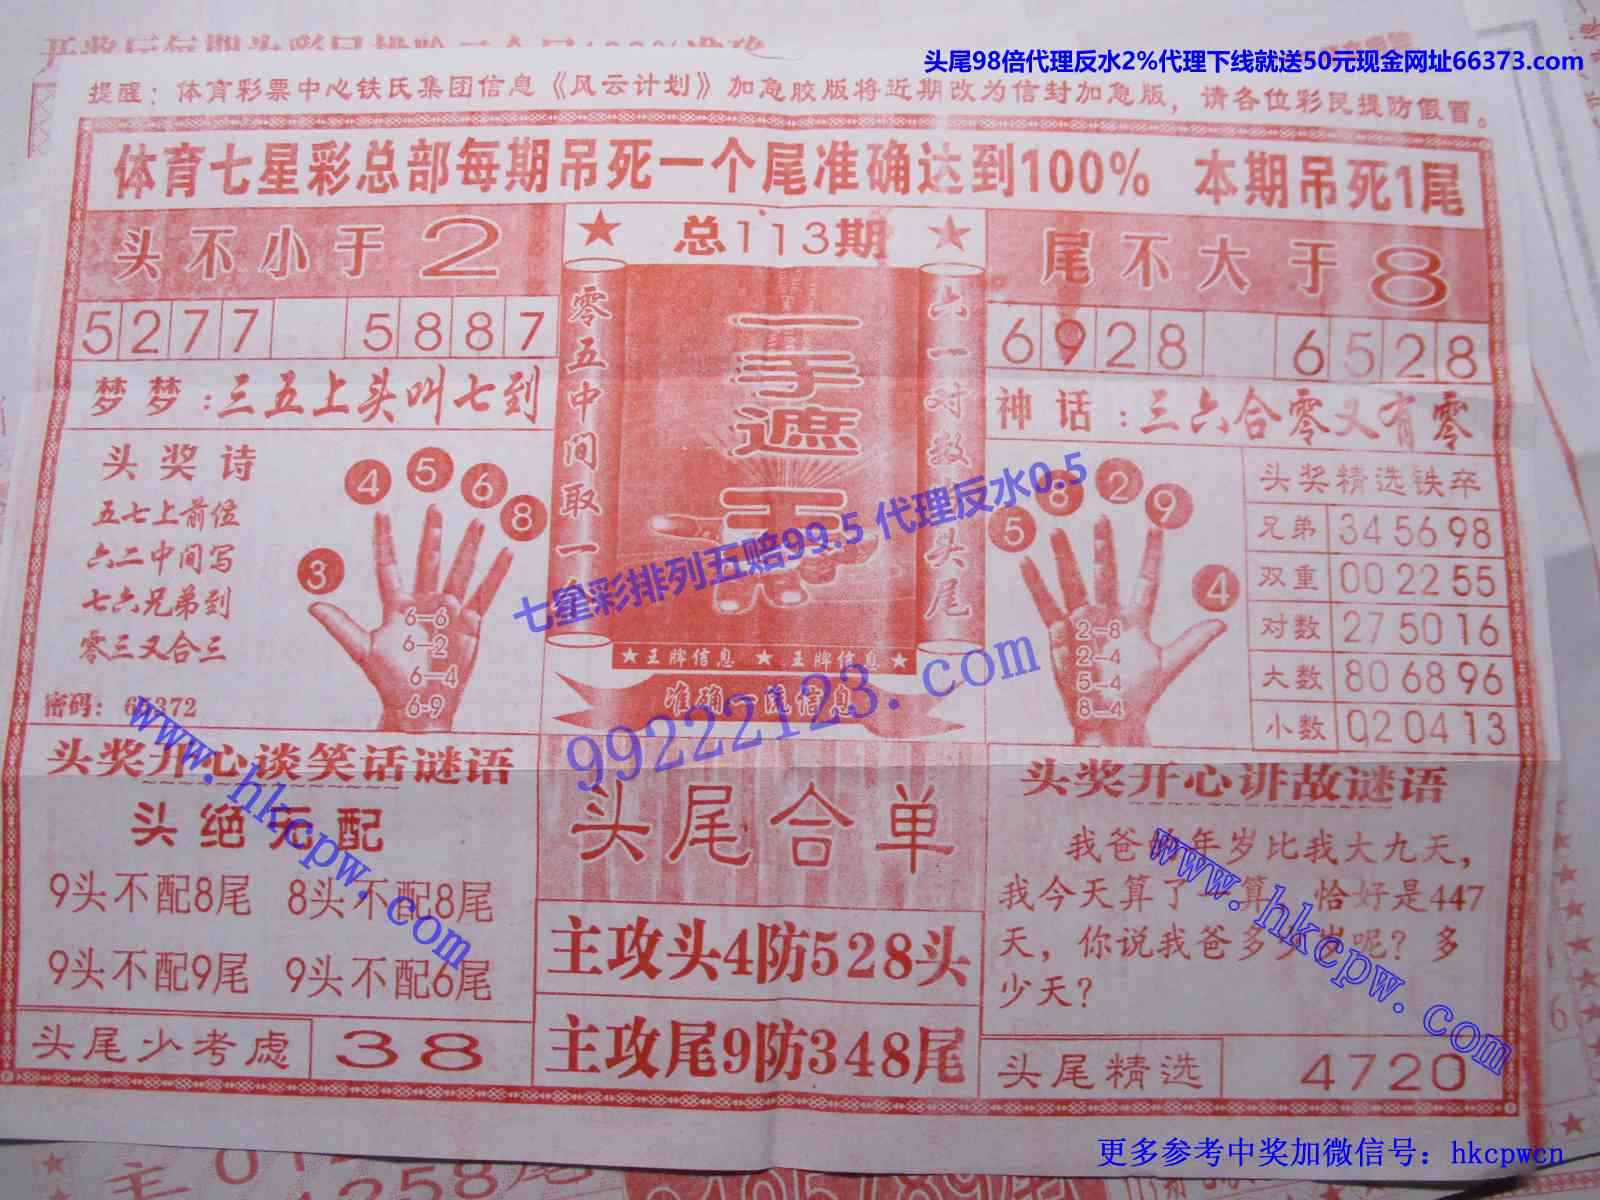 头尾98倍代理反水2%代理下线就送50元现金网址66373.com
提醒：体育彩票中心铁氏集团信息《风云计划》加急胶版将近期改为信封加急版，请各位彩民提防假冒。
体育七星彩总部每期吊死一个尾准确达到100% 本期吊死1尾
头不小于2
★ 总113期 ★
尾不大于8
5277 5887
6928 6528
零五中间取一
一手遮天
六一对数 头尾
梦梦：三五上头叫七到
神话：三六合零又有零
头奖诗
五七上前位
六二中间写
七六兄弟到
零三又合三
3 4 5 6 8
6—6
6—2
6—4
6-9
5 8 2 9 4
2—8
2—4
5—4
8—4
头奖精选铁卒
兄弟 34 56 98
双重 00 22 55
对数 27 50 16
大数 80 68 96
小数 02 04 13
七星彩排列五赔99.5 代理反水0.5
★王牌信息 ★ 王牌信息★
准确一流信息
99222123.com
www.hkcpw.com
头奖开心谈笑话谜语
头绝死配
9头不配8尾 8头不配8尾
9头不配9尾 9头不配6尾
头尾少考虑 38
头尾合单
主攻头4防528头
主攻尾9防348尾
头奖开心讲故谜语
我爸的年岁比我大九天，
我今天算了一算，恰好是447
天，你说我爸多少岁呢？多
少天？
www.hkcpw.com
头尾精选 4720
更多参考中奖加微信号：hkcpwcn